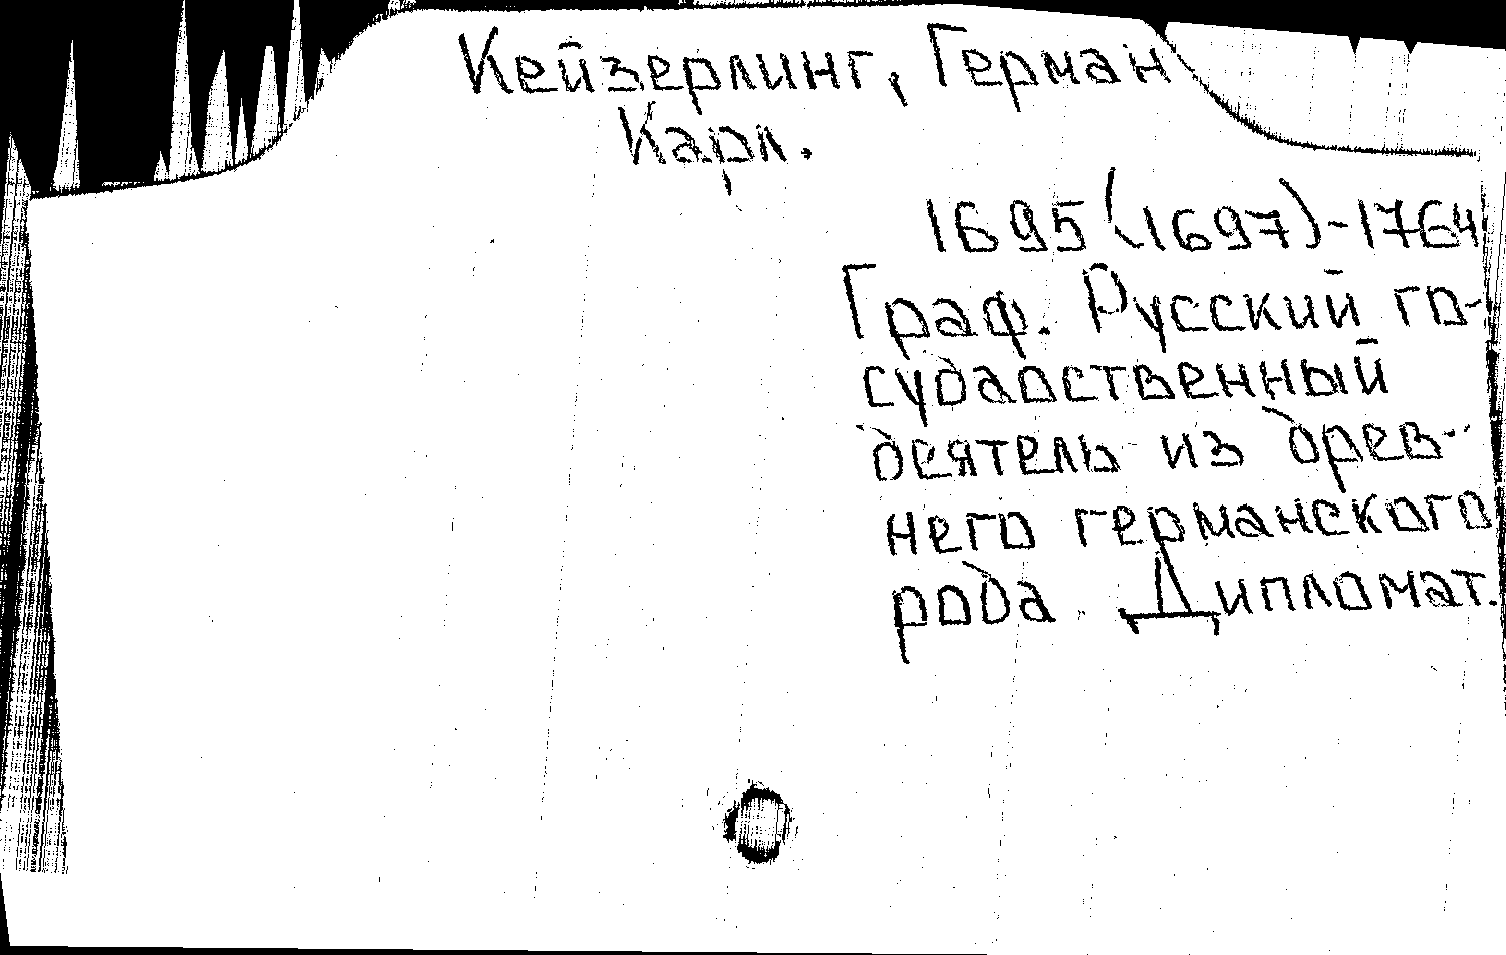 Кейзерлинг, Герман
Карл.
1695(1697)-1764
Граф. Русский го-
сударственный
деятель из древ-
него германского
рода. Дипломат.